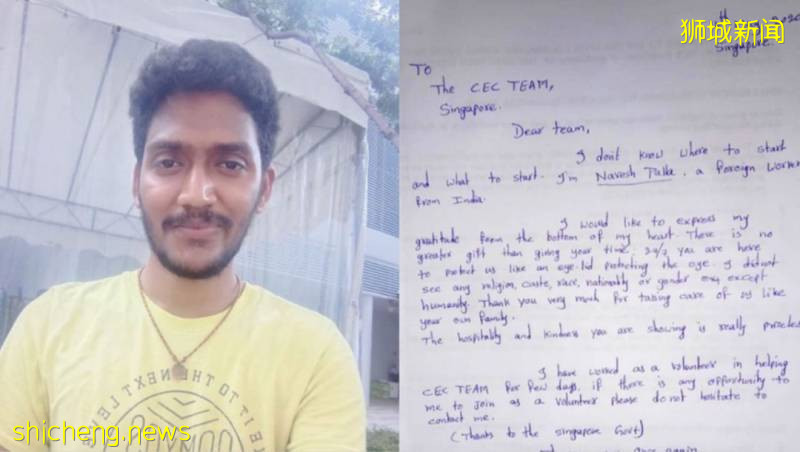 狮城新闻
Singapore.
TO
The CEC TEAM,
Singapore.
Dear team,
I don't know where to start
and what to start. I'm Navesh Talla, a foreign worker
from India.
I would like to express my
gratitude from the bottom of my heart. There is no
greater gift than giving your time. 24/7 you are here
to protect us like an eye-lid protecting the eye. I didnot
see any religion, caste, race, nationality or gender except
humanity. Thank you very much for taking care of us like
your own family.
The hospitality and kindness you are showing is really
I have worked as a volunteer in helping
CEC TEAM for few days. if there is any opportunity to
me to join as a volunteer please do not hesitate to
contact me.
(Thanks to the singapore Govt)
once again
shicheng.news